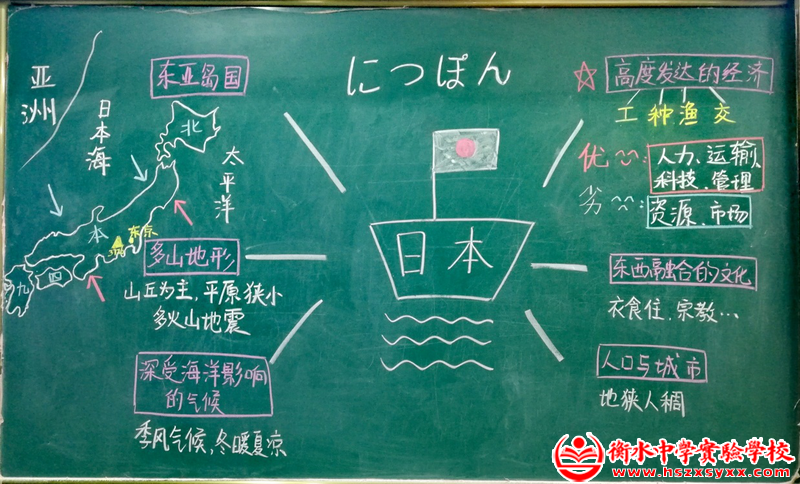 につぽん
亚洲
日本海
东亚岛国
北
太平洋
本
东京
四
九
多山地形
山丘为主,平原狭小
多火山地震
深受海洋影响
的气候
季风气候,冬暖夏凉
日本
高度发达的经济
工种渔交
优:人力、运输、
科技、管理
劣:资源、市场
东西融合的文化
衣食住、宗教…
人口与城市
地狭人稠
衡水中学实验学校
www.hszxsyxx.com